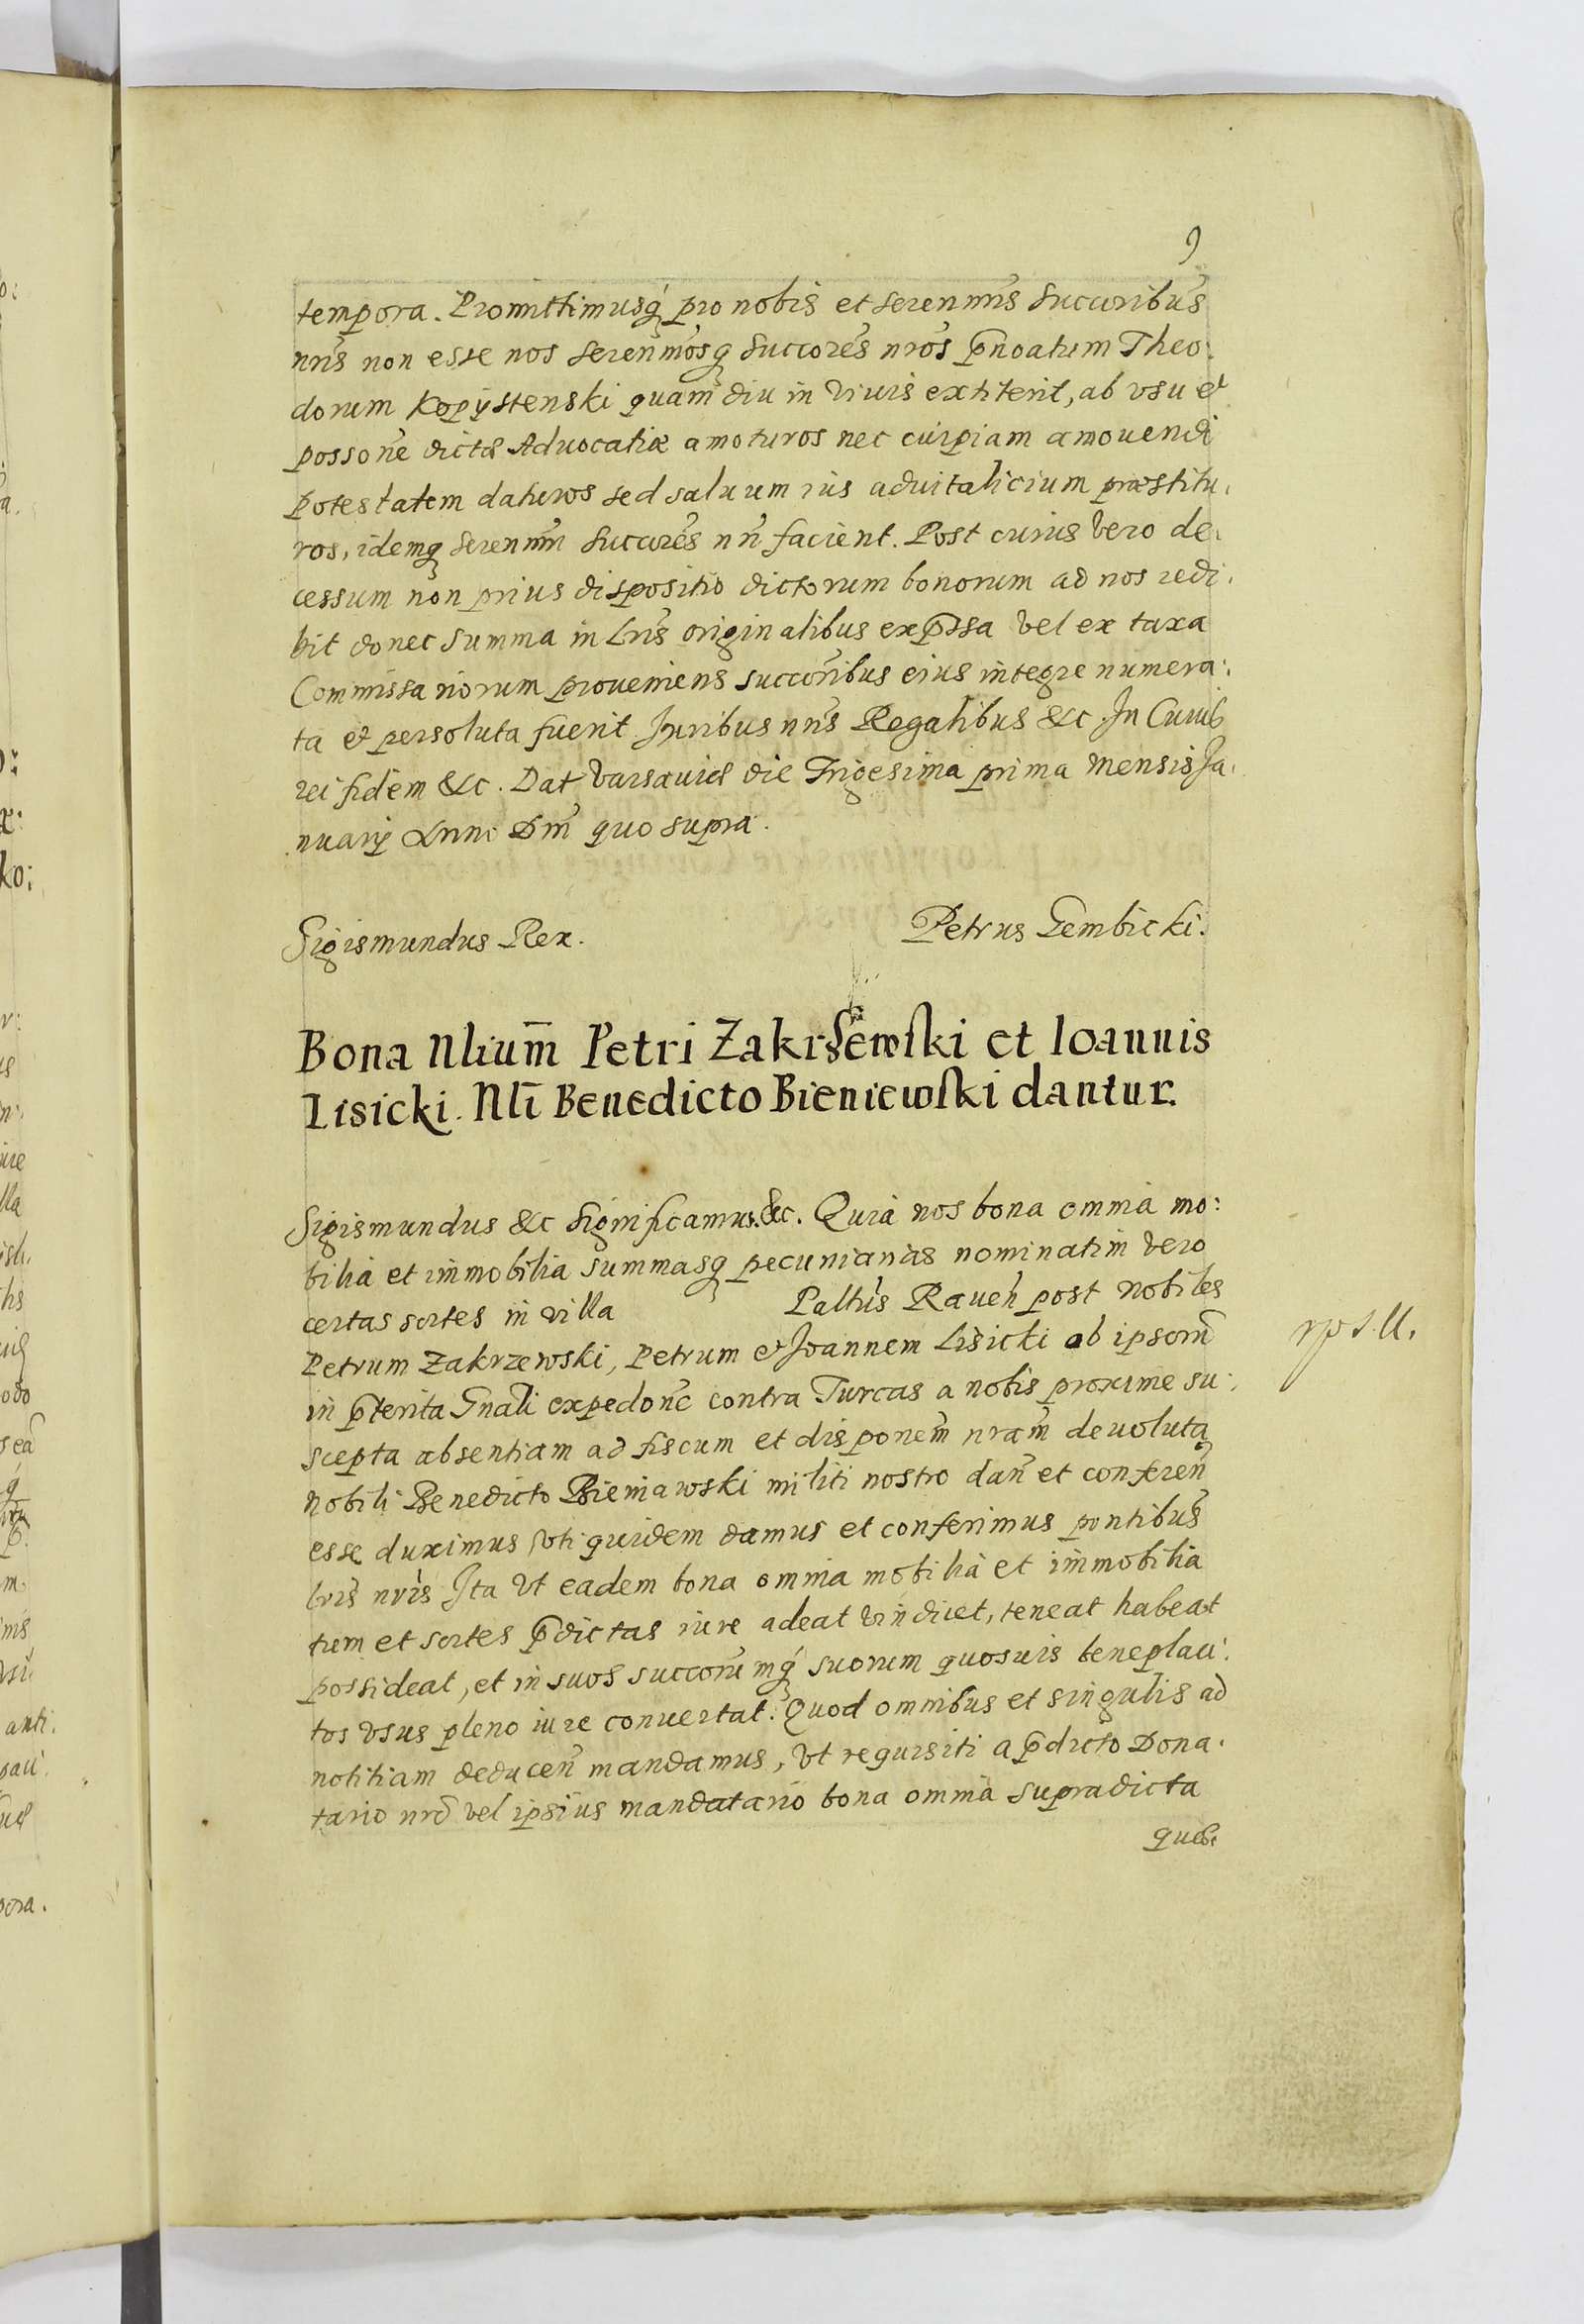 9
tempora. Promittimusq́ pro nobis et serenmis̃ Succoribus̃
nris̃ non esse nos serenmosq̃ Succores̃ nros̃ p̃noatum Theo:
dorum Kopÿstenski quam diu in viuis extiterit, ab vsu et
possone̅ dictæ Aduocatiæ amoturos nec cuipiam amouendi
potestatem daturos sed saluum ius aduitalicium præstitu,
ros, idemq̃ serenmi̅ Succores̃ nri̅ facient. Post cuius vero de,
cessum non prius dispositio dictorum bonorum ad nos redi,
bit donec summa in Lris̃ originalibus exp̃ssa vel ex taxa
Commissariorum proueniens succoribus̃ eius integre numera:
ta et persoluta fuerit Juribus nris̃ Regalibus &c. In Cuius
rei fidem &c. Dat Varsauiæ die Trigesima prima mensis Ja,
nuarij Anni Dni̅ quo supra.
Sigismundus Rex.
Petrus Gembicki.
Bona Nlium̅ Petri Zakrsewski et Ioannis
Lisicki. Nli̅ Benedicto Bieniewski dantur.
Sigismundus &c Significamus. &c. Quia nos bona omnia mo:
bilia et immobilia summasq̃ pecuniarias nominatim vero
certas sortes in villa Palttus̃ Raueñ post Nobiles
Petrum Zakrzewski, Petrum et Joannem Lisicki ob ipsorũ
in p̃terita Gnali̅ expedone̅ contra Turcas a nobis proxime su:
scepta absentiam ad fiscum et disponem̅ nram̅ deuoluta
Nobili Benedicto Bieniawski militi nostro dan̅ et conferen̅
esse duximus vti quidem damus et conferimus pntibus̃
lris̃ nris̃ Ita Vt eadem bona omnia mobilia et immobilia
tum et sortes p̃dictas iure adeat vindicet, teneat habeat
possideat, et in suos succorumq́ suorum quosuis beneplaci:
tos vsus pleno iure conuertat. Quod omnibus et singulis ad
notitiam deducen̅ mandamus, Vt requisiti a p̃dicto Dona.
tario nrõ vel ipsius mandatario bona omnia supradicta
quæ